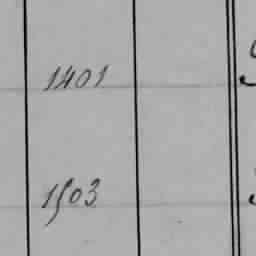 1401
1503